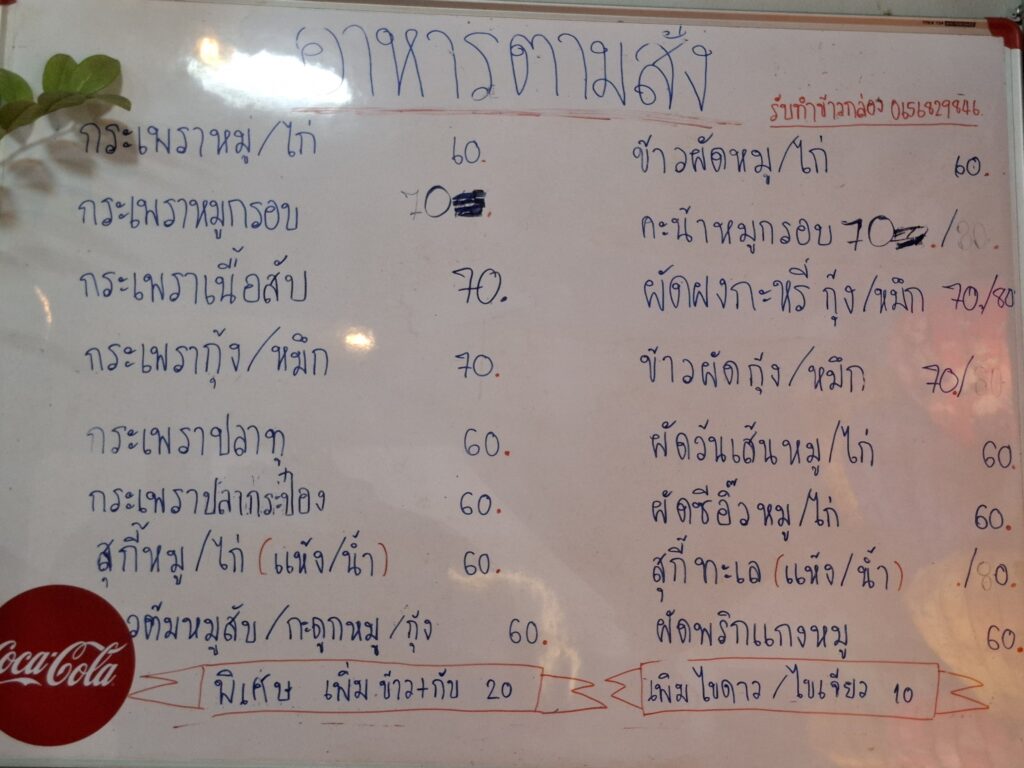 อาหารตามสั่ง
รับทำข้าวกล่อง 0656829846
กระเพราหมู/ไก่ 60.
กระเพราหมูกรอบ 70
กระเพราเนื้อสับ 70.
กระเพรากุ้ง/หมึก 70.
กระเพราปลาทู 60.
กระเพราปลากระป๋อง 60.
สุกี้หมู/ไก่ (แห้ง/น้ำ) 60.
วต้มหมูสับ/กะดูกหมู/กุ้ง 60.
พิเศษ เพิ่มข้าว+กับ 20
ข้าวผัดหมู/ไก่ 60.
คะน้าหมูกรอบ 70 ./80.
ผัดผงกะหรี่ กุ้ง/หมึก 70./80
ข้าวผัดกุ้ง/หมึก 70./80
ผัดวุ้นเส้นหมู/ไก่ 60.
ผัดซีอิ๊วหมู/ไก่ 60.
สุกี้ทะเล (แห้ง/น้ำ) ./80.
ผัดพริกแกงหมู 60.
เพิ่มไขดาว/ไขเจียว 10
Coca-Cola